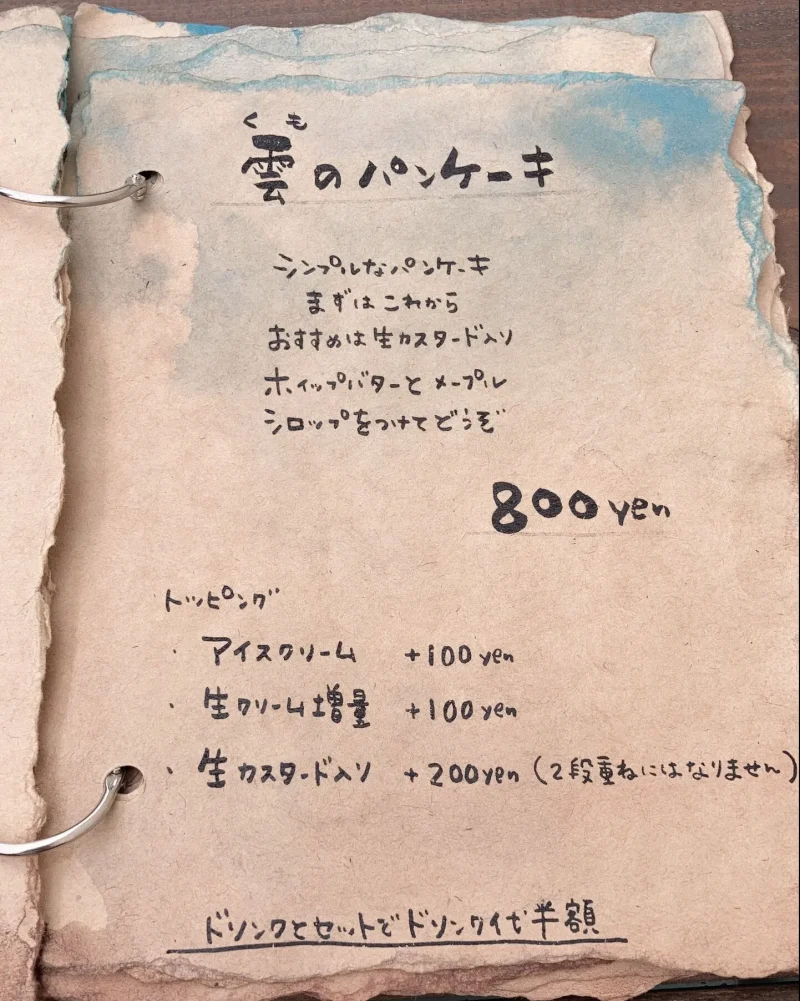 くも
雲のパンケーキ
シンプルなパンケーキ
まずはこれから
おすすめは生カスタード入り
ホイップバターとメープル
シロップをつけてどうぞ
800yen
トッピング
・アイスクリーム +100yen
・生クリーム増量 +100yen
・生カスタード入り +200yen (2段重ねにはなりません)
ドリンクとセットでドリンク代半額